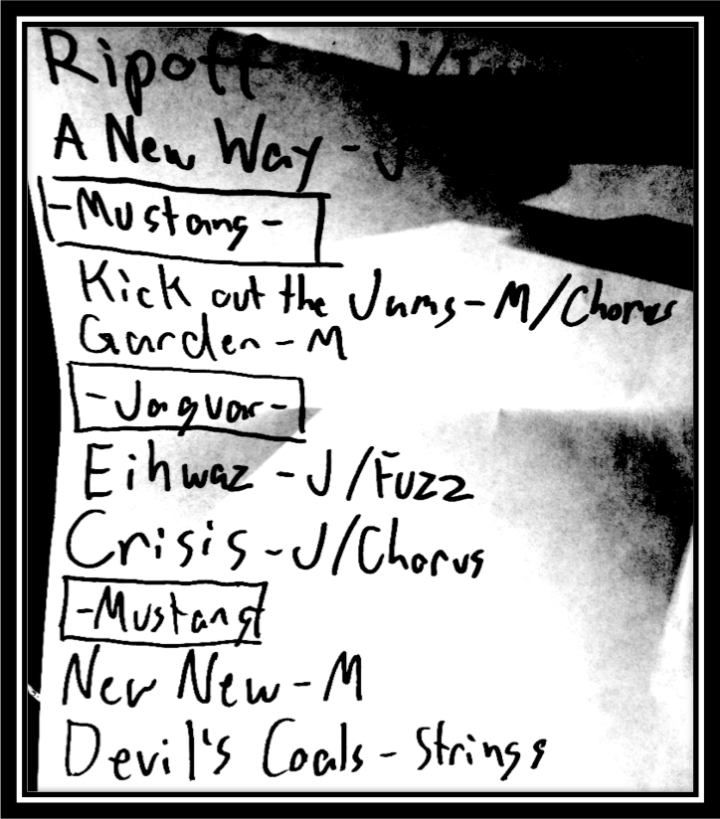 Ripoff J/
A New Way - J
-Mustang-
Kick out the Jams - M/Chorus
Garden - M
-Jaguar-
Eihwaz - J/Fuzz
Crisis - J/Chorus
-Mustang-
New - M
Devil's Coals - Strings